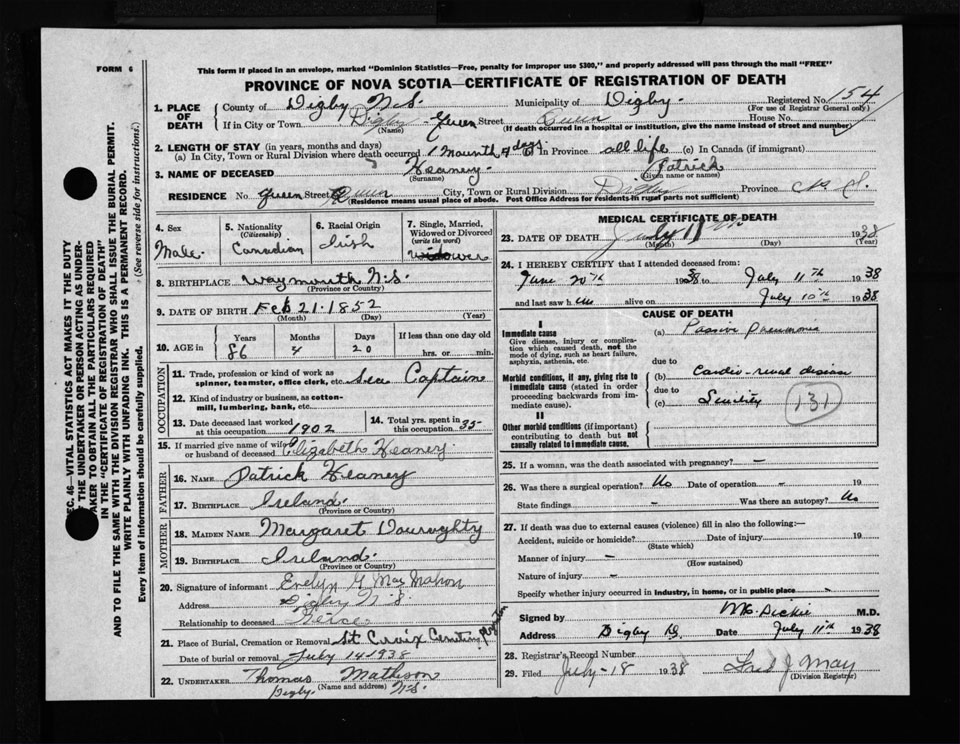 FORM 6
This form if placed in an envelope, marked "Dominion Statistics—Free, penalty for improper use $300," and properly addressed will pass through the mail "FREE"
PROVINCE OF NOVA SCOTIA—CERTIFICATE OF REGISTRATION OF DEATH
SEC. 46—VITAL STATISTICS ACT MAKES IT THE DUTY
OF THE UNDERTAKER OR PERSON ACTING AS UNDER-
TAKER TO OBTAIN ALL THE PARTICULARS REQUIRED
IN THE "CERTIFICATE OF REGISTRATION OF DEATH"
AND TO FILE THE SAME WITH THE DIVISION REGISTRAR WHO SHALL ISSUE THE BURIAL PERMIT.
WRITE PLAINLY WITH UNFADING INK. THIS IS A PERMANENT RECORD.
Every item of information should be carefully supplied. (See reverse side for instructions.)
1. PLACE OF DEATH County of Digby N.S. Municipality of Digby. Registered No. 154
(For use of Registrar General only)
If in City or Town Digby (Name) Queen Street Queen House No.
(If death occurred in a hospital or institution, give the name instead of street and number)
2. LENGTH OF STAY (in years, months and days)
(a) In City, Town or Rural Division where death occurred 1 Mounth 9 days (b) In Province all life (c) In Canada (if immigrant)
3. NAME OF DECEASED Heaney (Surname) Patrick (Given name or names)
RESIDENCE No. Queen Street Queen City, Town or Rural Division Digby Province N.S.
(Residence means usual place of abode. Post Office Address for residents in rural parts not sufficient)
4. Sex Male.
5. Nationality (Citizenship) Canadian
6. Racial Origin Irish
7. Single, Married, Widowed or Divorced (write the word) Widower
8. BIRTHPLACE Waymouth N.S.
(Province or Country)
9. DATE OF BIRTH Feb 21. 1852
(Month) (Day) (Year)
10. AGE in Years 86 Months 4 Days 20 If less than one day old hrs. or min.
OCCUPATION
11. Trade, profession or kind of work as spinner, teamster, office clerk, etc. Sea Captain
12. Kind of industry or business, as cotton-mill, lumbering, bank, etc.
13. Date deceased last worked at this occupation 1902
14. Total yrs. spent in this occupation 35-
15. If married give name of wife or husband of deceased Elizabeth Heaney.
FATHER
16. NAME Patrick Heaney
17. BIRTHPLACE Ireland.
(Province or Country)
MOTHER
18. MAIDEN NAME Margaret Douroughty
19. BIRTHPLACE Ireland.
(Province or Country)
20. Signature of informant Evelyn G Mac Mahon
Address Digby N.S.
Relationship to deceased Neice
21. Place of Burial, Cremation or Removal St Croix Cemetery Plympton
Date of burial or removal July 14 1938
22. UNDERTAKER Thomas Mathison
Digby. (Name and address) N.S.
MEDICAL CERTIFICATE OF DEATH
23. DATE OF DEATH July 11th 1938
(Month) (Day) (Year)
24. I HEREBY CERTIFY that I attended deceased from:
June 20th 1938 to July 11th 1938
and last saw him alive on July 10th 1938
CAUSE OF DEATH
I
Immediate cause
Give disease, injury or complication which caused death, not the mode of dying, such as heart failure, asphyxia, asthenia, etc.
(a) Passive Pneumonia
due to
Morbid conditions, if any, giving rise to immediate cause (stated in order proceeding backwards from immediate cause).
(b) Cardio-renal disease
due to
(c) Senility
131
II
Other morbid conditions (if important) contributing to death but not causally related to immediate cause.
25. If a woman, was the death associated with pregnancy? —
26. Was there a surgical operation? No Date of operation - 19
State findings — Was there an autopsy? No
27. If death was due to external causes (violence) fill in also the following:—
Accident, suicide or homicide? Date of injury 19
(State which)
Manner of injury —
(How sustained)
Nature of injury —
Specify whether injury occurred in industry, in home, or in public place -
Signed by Dickie M.D.
Address Digby Date July 11th 1938
28. Registrar's Record Number
29. Filed July-18 1938 Fred J May
(Division Registrar)